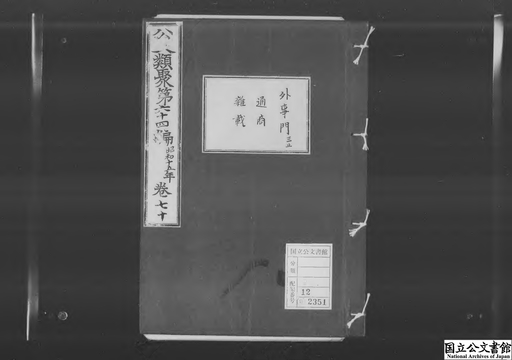 公文類聚第六十四編昭和十五年 卷七十
外事門三止
通商
雜載
国立公文書館
分類
配架番号
12
2351
国立公文書館
National Archives of Japan